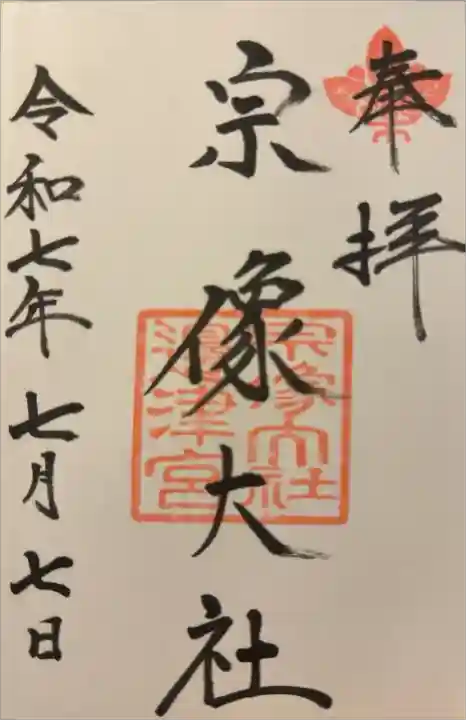 奉拝
宗像大社
宗像大社
邉津宮
令和七年 七月 七日